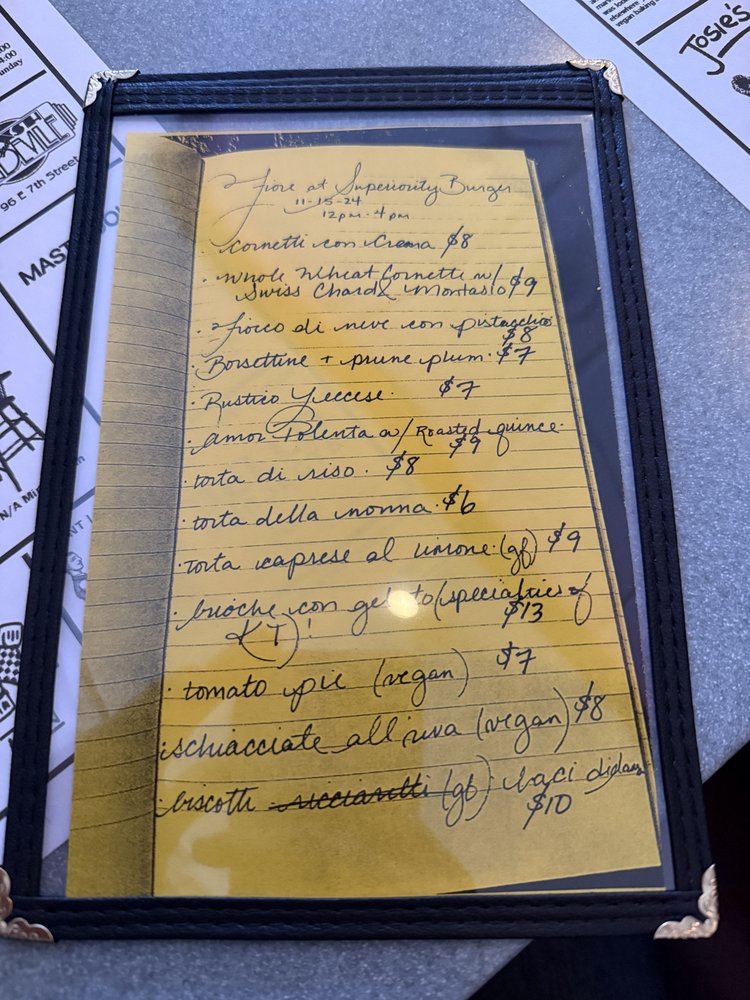 Fiore at Superiority Burger
11-15-24
12pm-4pm
cornetti con crema $8
· Whole Wheat Cornetti w/ $9
Swiss Chard & Montasio
· Fiocco di neve con pistacchio
$8
· Borsettine + prune plum. $7
· Rustico Leccese. $7
· Amor Polenta w/ Roasted quince.
$9
· torta di riso. $8
· torta della nonna. $6
· torta caprese al limone. (gf) $9
· brioche con gelato (specialties of
$13
KT)!
· tomato pie (vegan) $7
schiacciate all'uva (vegan) $8
· biscotti ricciarelli (gf) baci di dama
$10
96 E 7th Street
MAST
N/A Mi
Josie's
elsewhere
vegan baking
was loo
unday